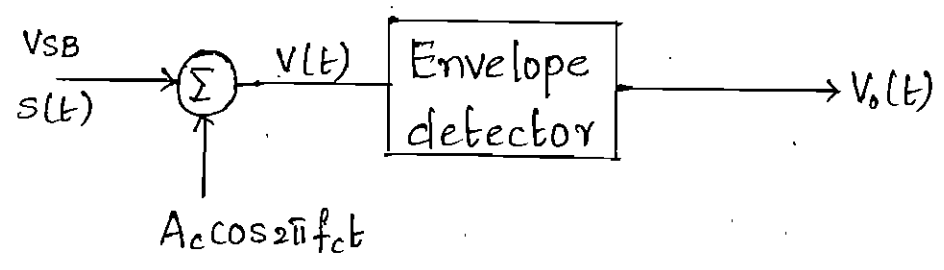 VSB
S(t)
Σ
V(t)
Envelope
detector
V₀(t)
A_c cos2πf_ct